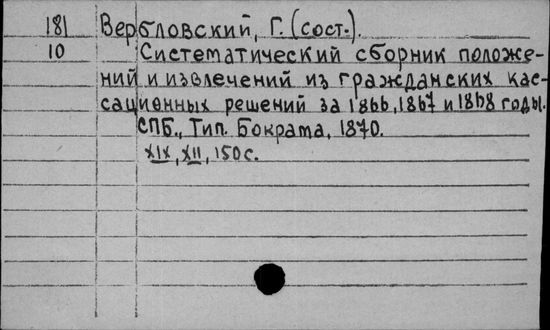 181 Вербловский, Г. (сост.).
10 Систематический сборник положе-
ний и извлечений из гражданских кас-
сационных решений за 1866, 1867 и 1868 годы.
СПБ., Тип. Бокрама, 1870.
XIX, XII, 150 с.